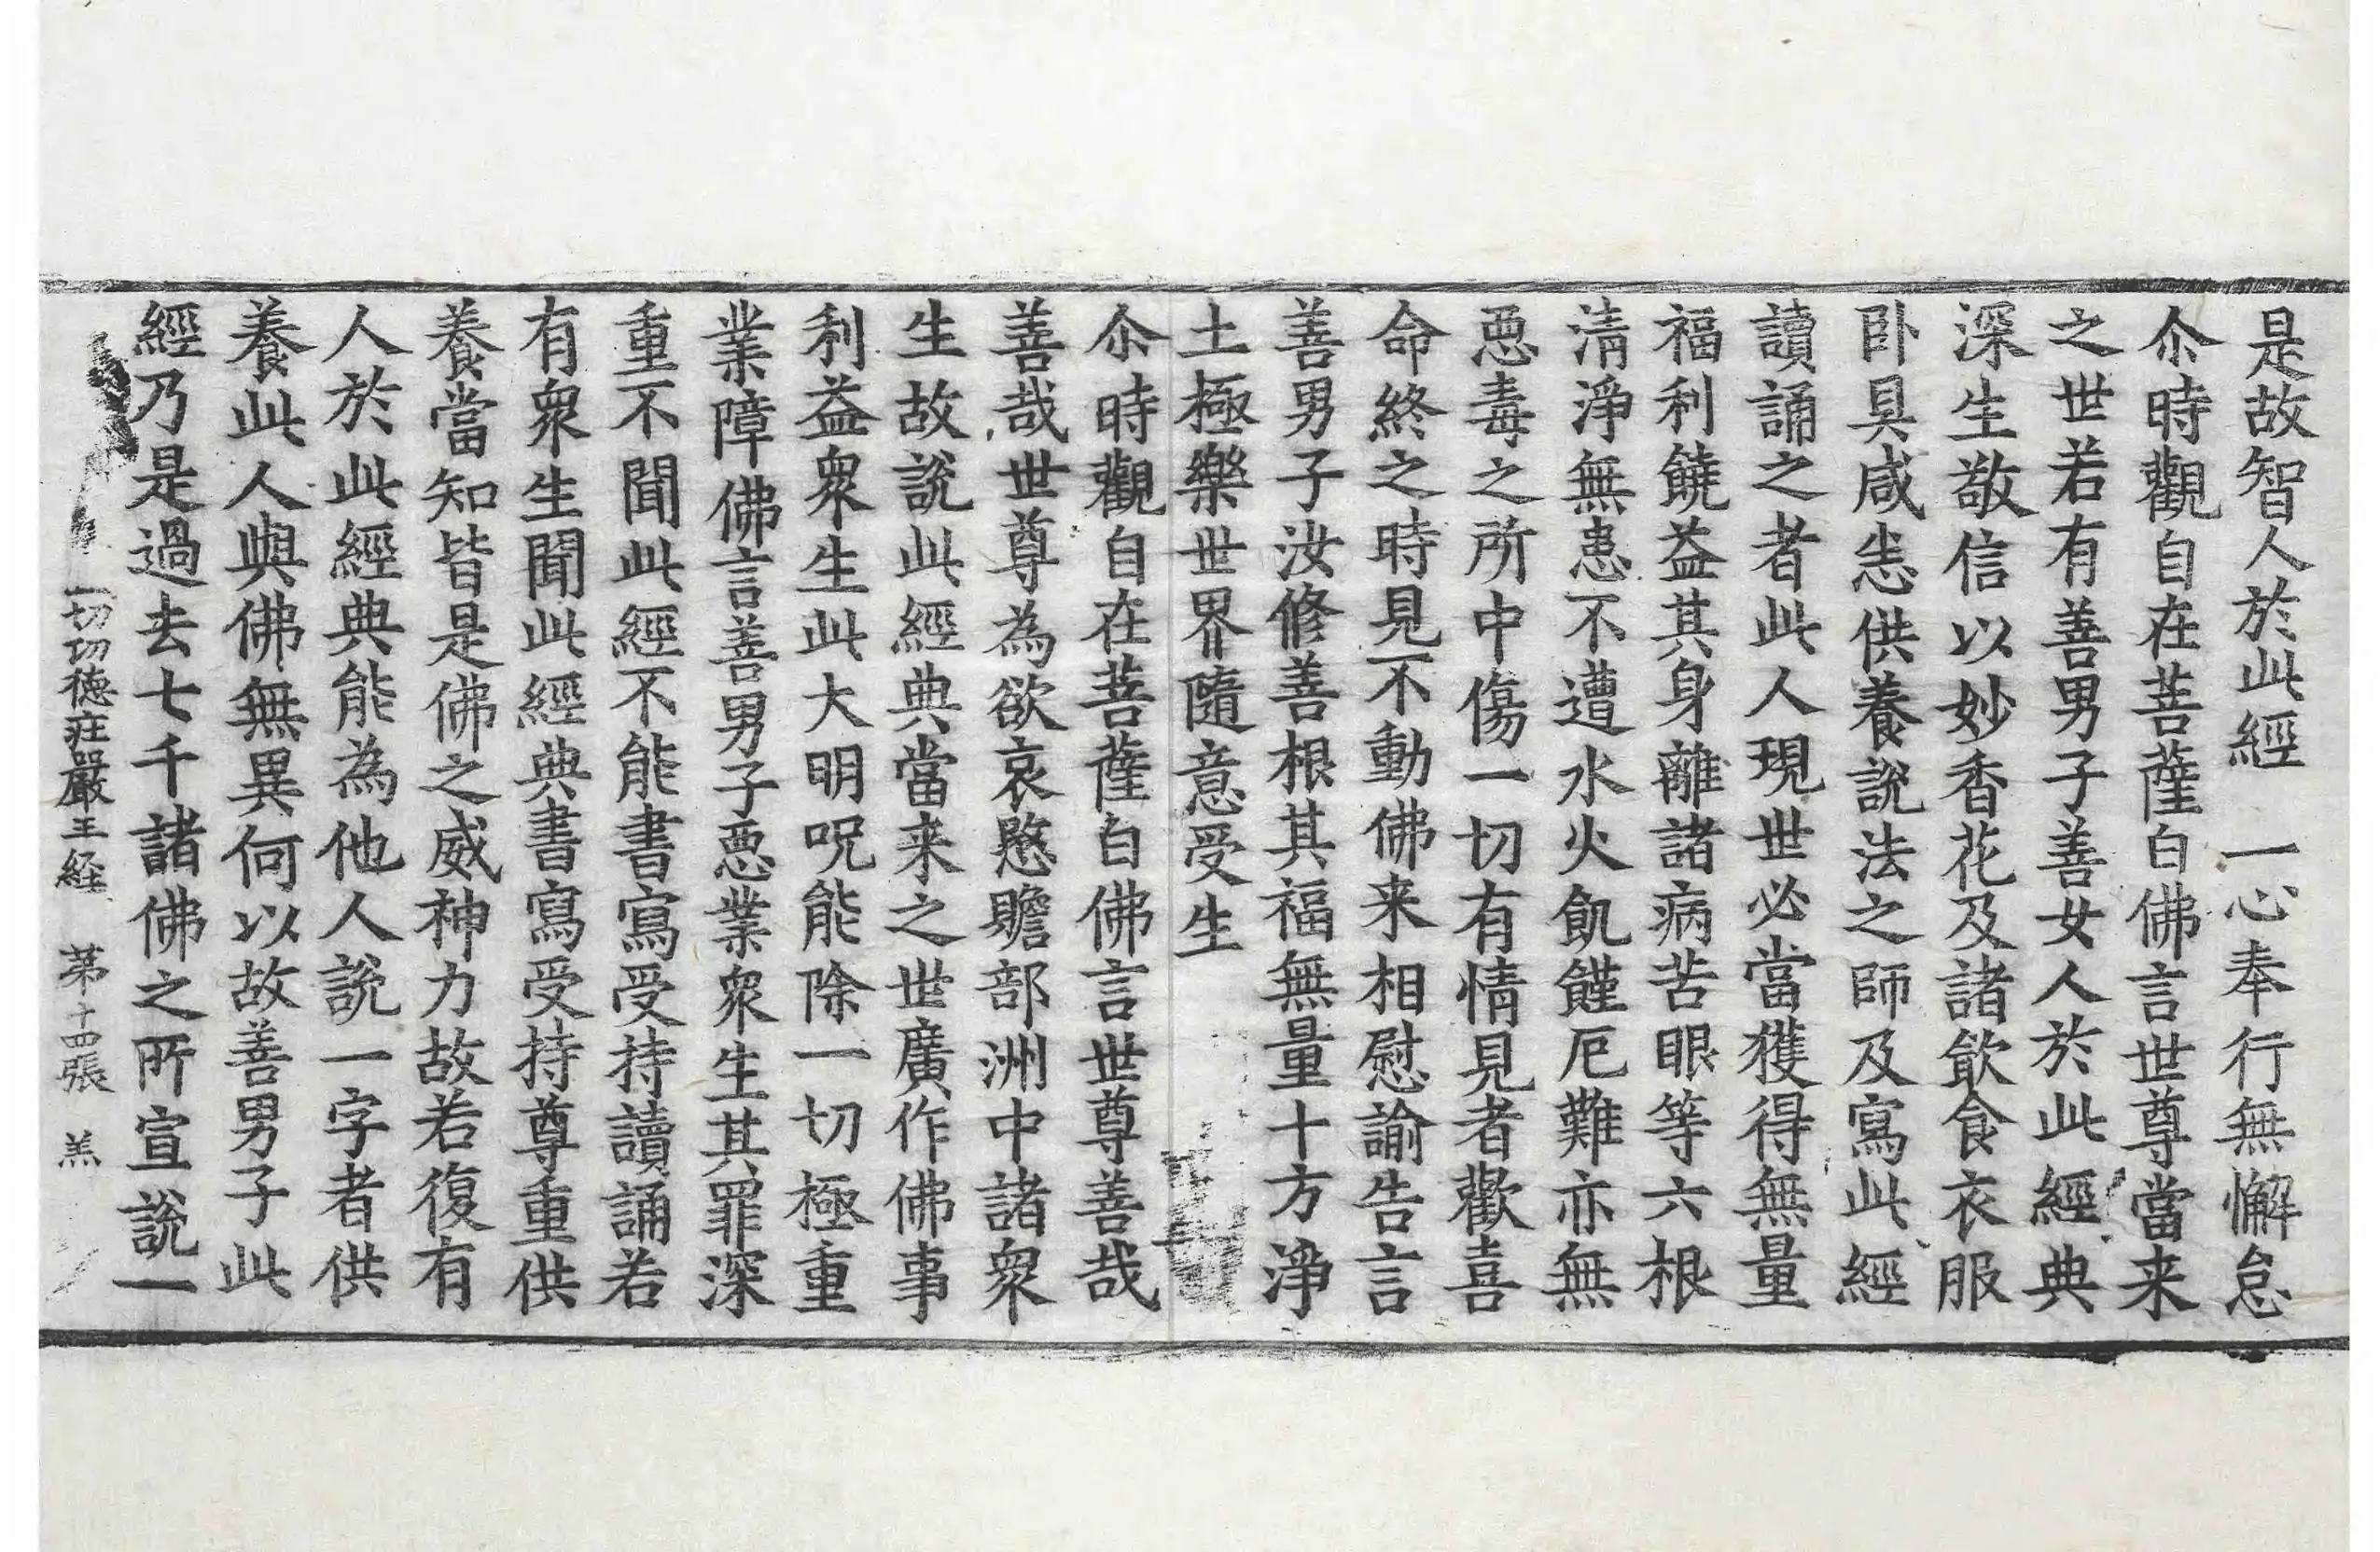 是故智人於此經　一心奉行無懈怠
尒時觀自在菩薩白佛言世尊當来
之世若有善男子善女人於此經典
深生敬信以妙香花及諸飲食衣服
卧具咸恙供養說法之師及寫此經
讀誦之者此人現世必當獲得無量
福利饒益其身離諸病苦眼等六根
清淨無患不遭水火飢饉厄難亦無
惡毒之所中傷一切有情見者歡喜
命終之時見不動佛来相慰諭告言
善男子汝修善根其福無量十方淨
土極樂世界隨意受生
尒時觀自在菩薩白佛言世尊善哉
善哉世尊為欲哀愍贍部洲中諸衆
生故說此經典當来之世廣作佛事
利益衆生此大明呪能除一切極重
業障佛言善男子惡業衆生其罪深
重不聞此經不能書寫受持讀誦若
有衆生聞此經典書寫受持尊重供
養當知皆是佛之威神力故若復有
人於此經典能為他人說一字者供
養此人與佛無異何以故善男子此
經乃是過去七千諸佛之所宣說一
一切功德莊嚴王経　苐十四張　羔